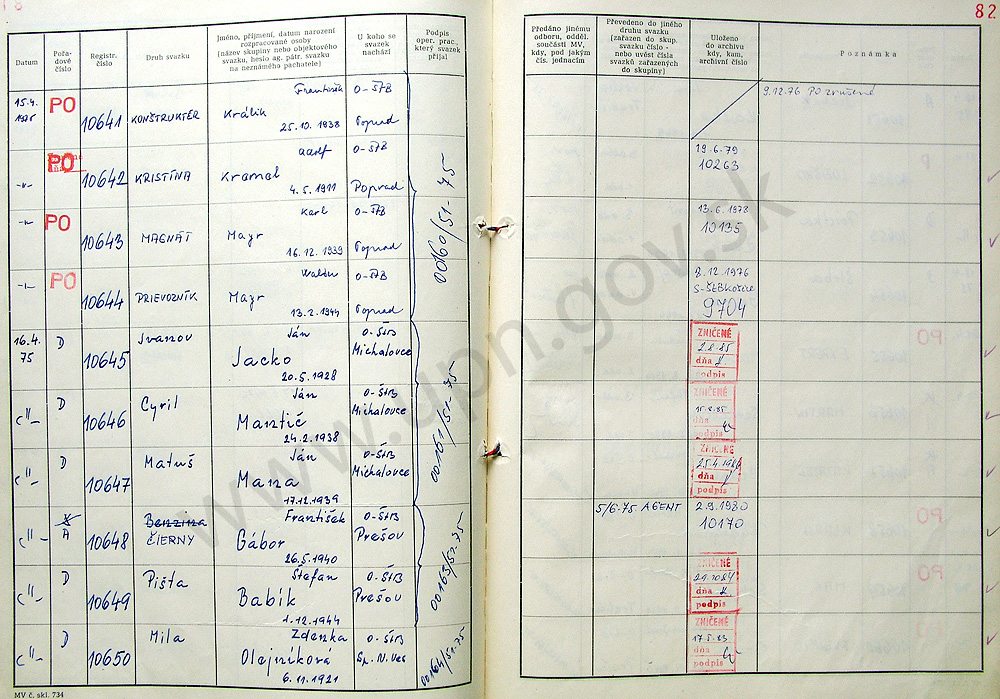 82
Datum
Pořadové číslo
Registr. číslo
Druh svazku
Jméno, příjmení, datum narození rozpracované osoby
(název skupiny nebo objektového svazku, heslo ag. pátr. svazku na neznámého pachatele)
U koho se svazek nachází
Podpis oper. prac., který svazek přijal
Předáno jinému odboru, odděl. součásti MV, kdy, pod jakým čís. jednacím
Převedeno do jiného druhu svazku (zařazen do skup. svazku číslo - nebo uvést čísla svazků zařazených do skupiny)
Uloženo do archivu kdy, kam, archivní číslo
Poznámka
15.4. PO 10641 KONŠTRUKTÉR František Králik 25.10.1938 O-ŠTB Poprad 9.12.76 PO zrušené
-"- PO 10642 KRISTÍNA Adolf Kramel 4.5.1911 O-ŠTB Poprad 19.6.79 10263
-"- PO 10643 MAGNÁT Karl Mayr 16.12.1939 O-ŠTB Poprad 13.6.1978 10135
-"- PO 10644 PRIEVOZNÍK Mayr 13.2.1944 O-ŠTB Poprad 8.12.1976 9704
00160/51-75
16.4. 75 D 10645 Ivanov Ján Jacko 20.5.1928 O-ŠtB Michalovce ZNIČENÉ 2.8.85 dňa podpis
-"- D 10646 Cyril Ján Mantič 24.2.1938 O-ŠtB Michalovce ZNIČENÉ 15.8.85 dňa podpis
-"- D 10647 Matuš Ján Mana 17.12.1939 O-ŠtB Michalovce ZNIČENÉ 25.4.1986 dňa podpis
00161/51-75
-"- A 10648 Benzina ČIERNY František Gábor 26.5.1940 O-ŠtB Prešov 5/6-75 AGENT 2.9.1980 10170
-"- D 10649 Pišta Štefan Babík 1.12.1944 O-ŠtB Prešov ZNIČENÉ dňa podpis
00163/52-75
-"- D 10650 Mila Zdenka Olejníková 6.11.1921 O-ŠtB Sp. N. Ves ZNIČENÉ 17.5.83 dňa podpis
00164/52-75
MV č. skl. 734
www.upn.gov.sk